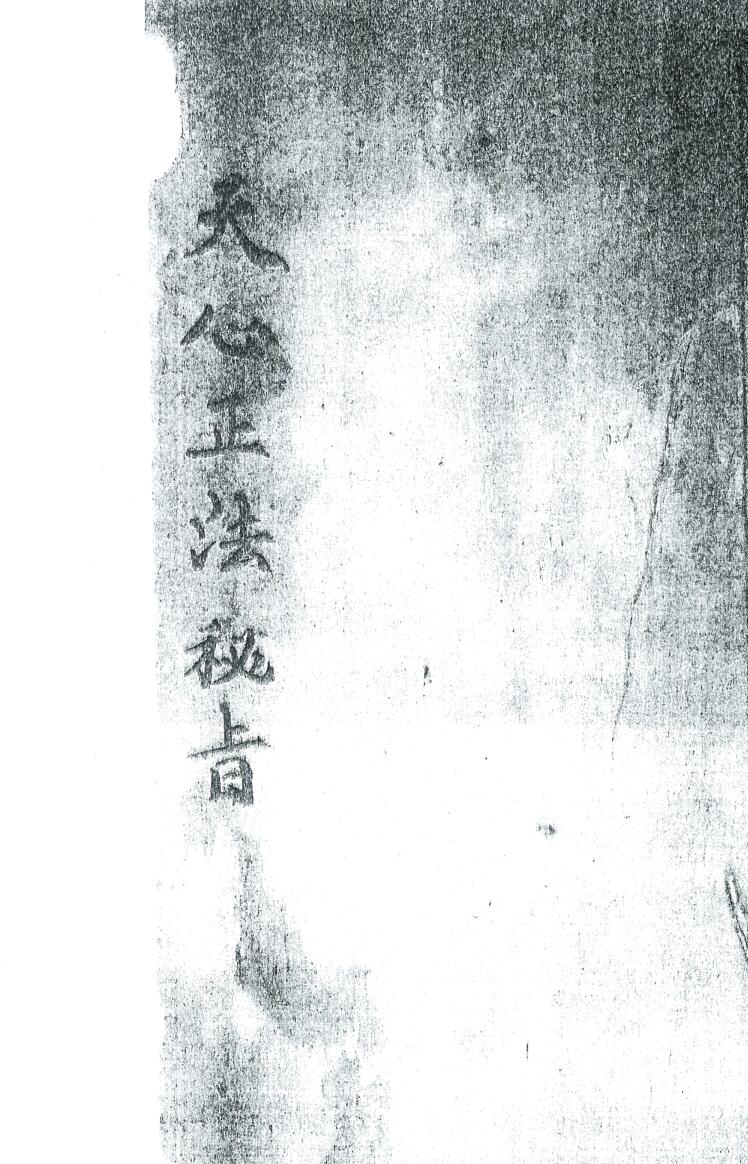 天心正法秘㫖